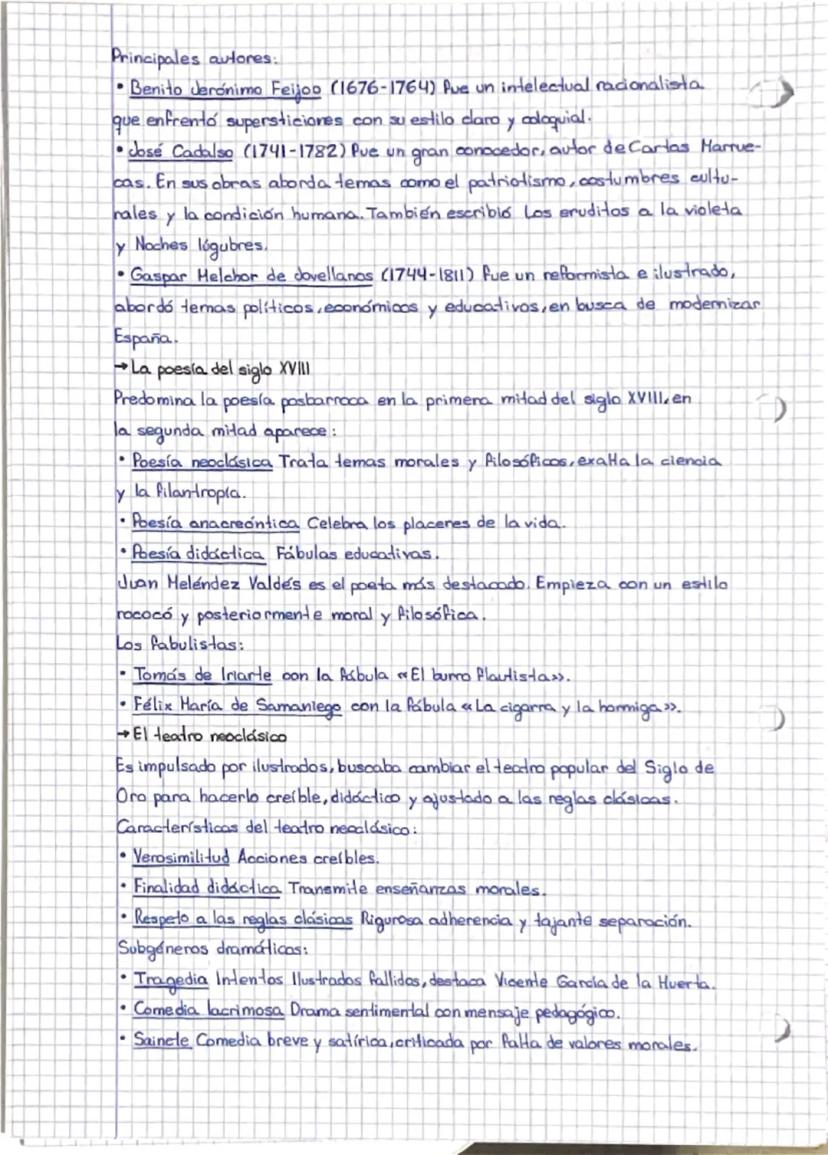 Principales autores:
• Benito Jerónimo Feijoo (1676-1764) fue un intelectual racionalista
que enfrentó supersticiones con su estilo claro y coloquial.
• José Cadalso (1741-1782) fue un gran conocedor, autor de Cartas Marrue-
cas. En sus obras aborda temas como el patriotismo, costumbres cultu-
rales y la condición humana. También escribió Los eruditos a la violeta
y Noches lógubres.
• Gaspar Melchor de Jovellanos (1744-1811) fue un reformista e ilustrado,
abordó temas políticos, económicos y educativos, en busca de modernizar
España.
→ La poesía del siglo XVIII
Predomina la poesía posbarroca en la primera mitad del siglo XVIII, en
la segunda mitad aparece:
• Poesía neoclásica Trata temas morales y filosóficos, exalta la ciencia
y la filantropía.
• Poesía anacreóntica Celebra los placeres de la vida.
• Poesía didáctica Fábulas educativas.
Juan Meléndez Valdés es el poeta más destacado. Empieza con un estilo
rococó y posteriormente moral y filosófica.
Los fabulistas:
• Tomás de Iriarte con la fábula «El burro flautista».
• Félix María de Samaniego con la fábula «La cigarra y la hormiga».
→ El teatro neoclásico
Es impulsado por ilustrados, buscaba cambiar el teatro popular del Siglo de
Oro para hacerlo creíble, didáctico y ajustado a las reglas clásicas.
Características del teatro neoclásico:
• Verosimilitud Acciones creíbles.
• Finalidad didáctica Transmite enseñanzas morales.
• Respeto a las reglas clásicas Rigurosa adherencia y tajante separación.
Subgéneros dramáticos:
• Tragedia Intentos Ilustrados fallidos, destaca Vicente García de la Huerta.
• Comedia lacrimosa Drama sentimental con mensaje pedagógico.
• Sainete Comedia breve y satírica, criticada por falta de valores morales.